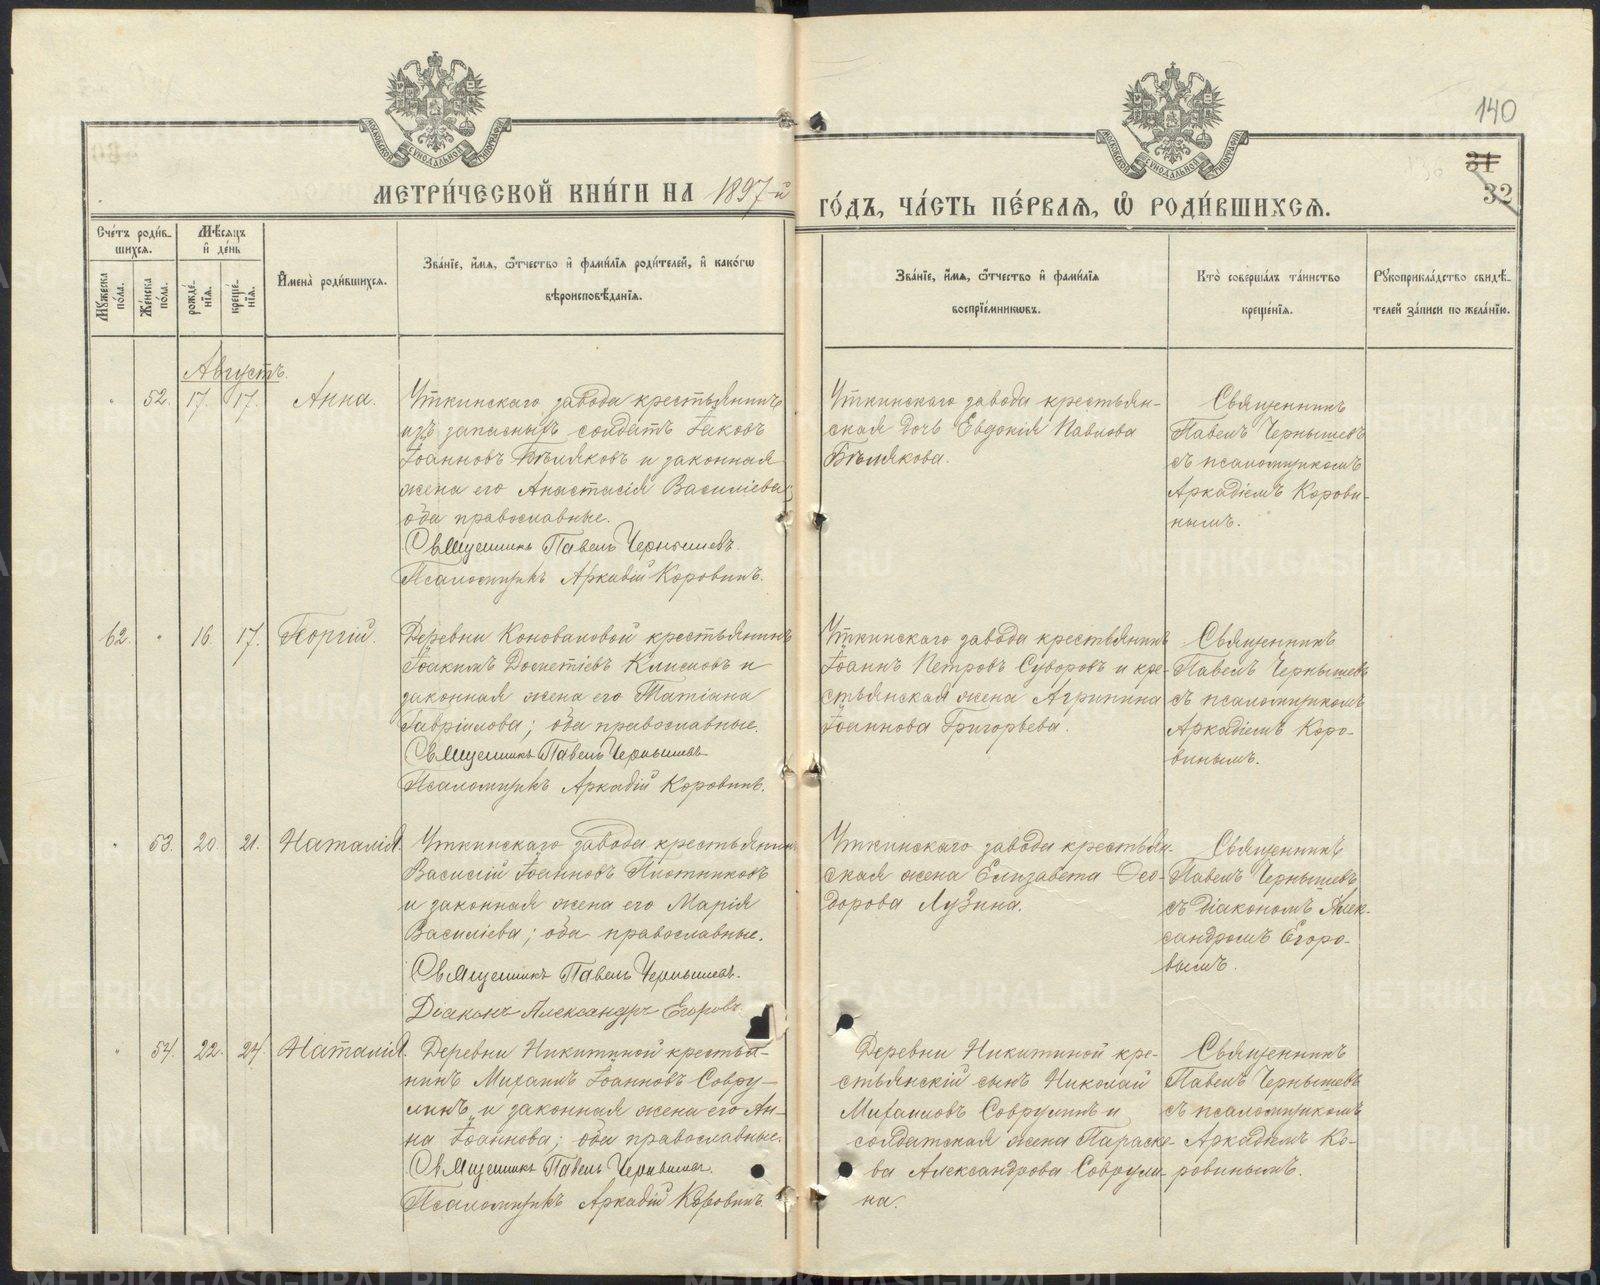 140
31
32
МОСКОВСКОЙ СѴНОДАЛЬНОЙ ТИПОГРАФІИ
МОСКОВСКОЙ СѴНОДАЛЬНОЙ ТИПОГРАФІИ
МЕТРИ́ЧЕСКОЙ КНИ́ГИ НА 1897-й
ГО́ДЪ, ЧА́СТЬ ПЕ́РВАЯ, Ѽ РОДИ́ВШИХСЯ.
Сче́тъ роди́в-
шихся.
Мѣ́сяцъ
и҆ де́нь
Му́жеска
по́ла.
Же́нска
по́ла.
рожде́-
нїѧ.
креще́-
нїѧ.
И҆мена̀ роди́вшихся.
Зва́нїе, и҆́мѧ, ѻ҆́тчество и҆ фами́лїѧ роди́телей, и҆ како́гѡ
вѣроисповѣ́данїѧ.
Зва́нїе, и҆́мѧ, ѻ҆́тчество и҆ фами́лїѧ
воспрїе́мникѡвъ.
Кто̀ соверша́лъ та́инство
креще́нїѧ.
Рꙋкоприкла́дство свидѣ́-
телей за́писи по жела́нїю.
Августъ.
" 52. 17. 17. Анна.
Уткинскаго завода крестьянинъ
изъ запасныхъ солдатъ Іаковъ
Іоанновъ Бѣляковъ и законная
жена его Анастасія Василіева;
оба православные.
Священникъ Павелъ Чернышевъ.
Псаломщикъ Аркадій Коровинъ.
Уткинскаго завода крестьян-
ская дочь Евдокія Павлова
Бѣлякова.
Священникъ
Павелъ Чернышевъ
съ псаломщикомъ
Аркадіемъ Корови-
нымъ.
62. " 16 17. Георгій.
Деревни Коноваловой крестьянинъ
Іоакимъ Дометіевъ Климовъ и
законная жена его Татіана
Гавріилова; оба православные.
Священникъ Павелъ Чернышевъ
Псаломщикъ Аркадій Коровинъ.
Уткинскаго завода крестьянинъ
Іоаннъ Петровъ Суворовъ и кре-
стьянская жена Агрипина
Іоаннова Григорьева.
Священникъ
Павелъ Чернышевъ
съ псаломщикомъ
Аркадіемъ Коро-
винымъ.
" 53. 20. 21. Наталія.
Уткинскаго завода крестьянинъ
Василій Іоанновъ Плотниковъ
и законная жена его Марія
Василіева; оба православные.
Священникъ Павелъ Чернышевъ.
Діаконъ Александръ Егоровъ.
Уткинскаго завода крестьян-
ская жена Елизавета Ѳео-
дорова Лузина.
Священникъ
Павелъ Чернышевъ
съ діакономъ Алек-
сандромъ Егоро-
вымъ.
" 54. 22. 24. Наталія.
Деревни Никитиной крестья-
нинъ Михаилъ Іоанновъ Совру-
линъ и законная жена его Ан-
на Іоаннова; оба православные.
Священникъ Павелъ Чернышевъ.
Псаломщикъ Аркадій Коровинъ.
Деревни Никитиной кре-
стьянскій сынъ Николай
Михаиловъ Соврулинъ и
солдатская жена Параске-
ва Александрова Соврули-
на.
Священникъ
Павелъ Чернышевъ
съ псаломщикомъ
Аркадіемъ Ко-
ровинымъ.
METRIKI.GASO-URAL.RU